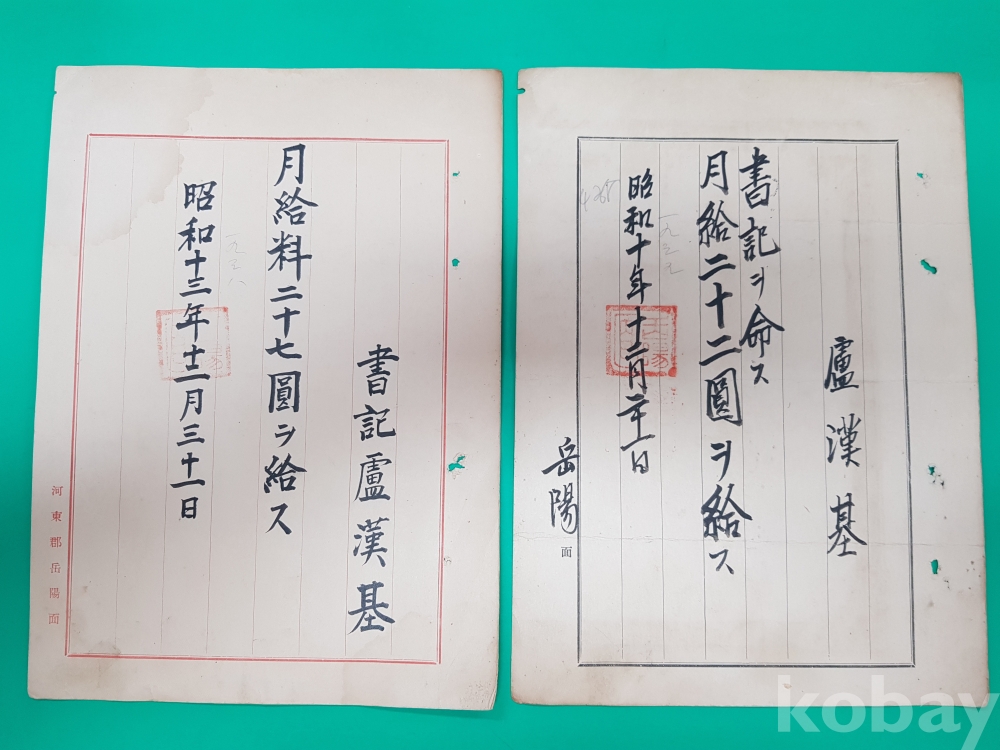 盧漢基
書記ヲ命ス
月給二十二圓ヲ給ス
一九三五
昭和十年十二月二十一日
岳陽面
書記盧漢基
月給料二十七圓ヲ給ス
一九三八
昭和十三年十二月三十一日
河東郡岳陽面
kobay